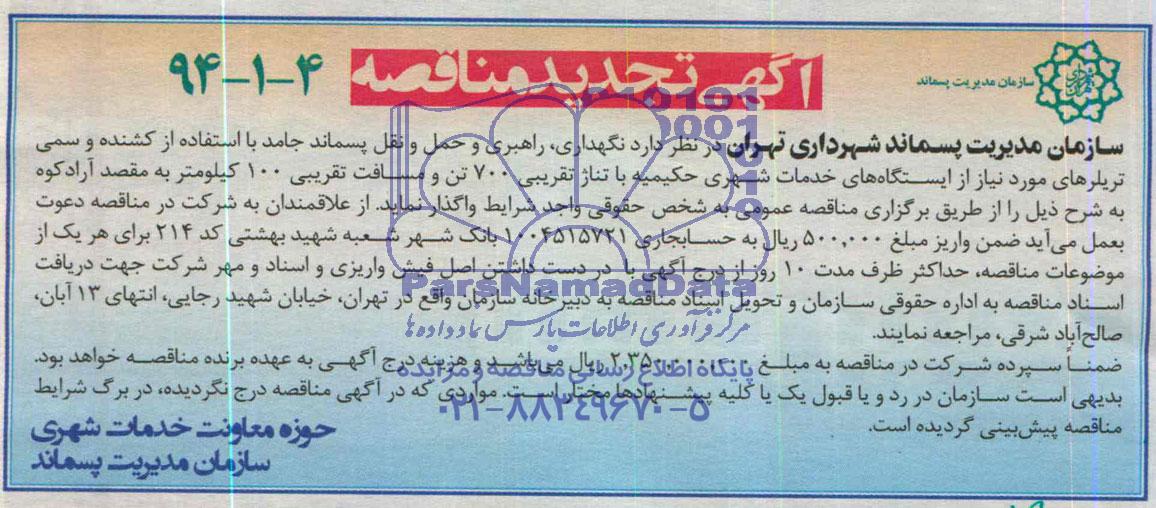 سازمان مدیریت پسماند
آگهی تجدید مناقصه
۹۴-۱-۴
سازمان مدیریت پسماند شهرداری تهران در نظر دارد نگهداری، راهبری و حمل و نقل پسماند جامد با استفاده از کشنده و سمی
تریلرهای مورد نیاز از ایستگاه‌های خدمات شهری حکیمیه با تناژ تقریبی ۷۰۰ تن و مسافت تقریبی ۱۰۰ کیلومتر به مقصد آرادکوه
به شرح ذیل را از طریق برگزاری مناقصه عمومی به شخص حقوقی واجد شرایط واگذار نماید. از علاقمندان به شرکت در مناقصه دعوت
بعمل می‌آید ضمن واریز مبلغ ۵۰۰,۰۰۰ ریال به حسابجاری ۱۰۰۴۵۱۵۷۲۱ بانک شهر شعبه شهید بهشتی کد ۲۱۴ برای هر یک از
موضوعات مناقصه، حداکثر ظرف مدت ۱۰ روز از درج آگهی با در دست داشتن اصل فیش واریزی و اسناد و مهر شرکت جهت دریافت
اسناد مناقصه به اداره حقوقی سازمان و تحویل اسناد مناقصه به دبیرخانه سازمان واقع در تهران، خیابان شهید رجایی، انتهای ۱۳ آبان،
صالح‌آباد شرقی، مراجعه نمایند.
ضمناً سپرده شرکت در مناقصه به مبلغ ۲,۳۵۰,۰۰۰,۰۰۰ ریال می‌باشد و هزینه درج آگهی به عهده برنده مناقصه خواهد بود.
بدیهی است سازمان در رد و یا قبول یک یا کلیه پیشنهادها مختار است. مواردی که در آگهی مناقصه درج نگردیده، در برگ شرایط
مناقصه پیش‌بینی گردیده است.
حوزه معاونت خدمات شهری
سازمان مدیریت پسماند
ParsNamadData
مرکز فرآوری اطلاعات پارس نماد داده‌ها
پایگاه اطلاع رسانی مناقصه و مزایده
۰۲۱-۸۸۳۴۹۶۷۰-۵